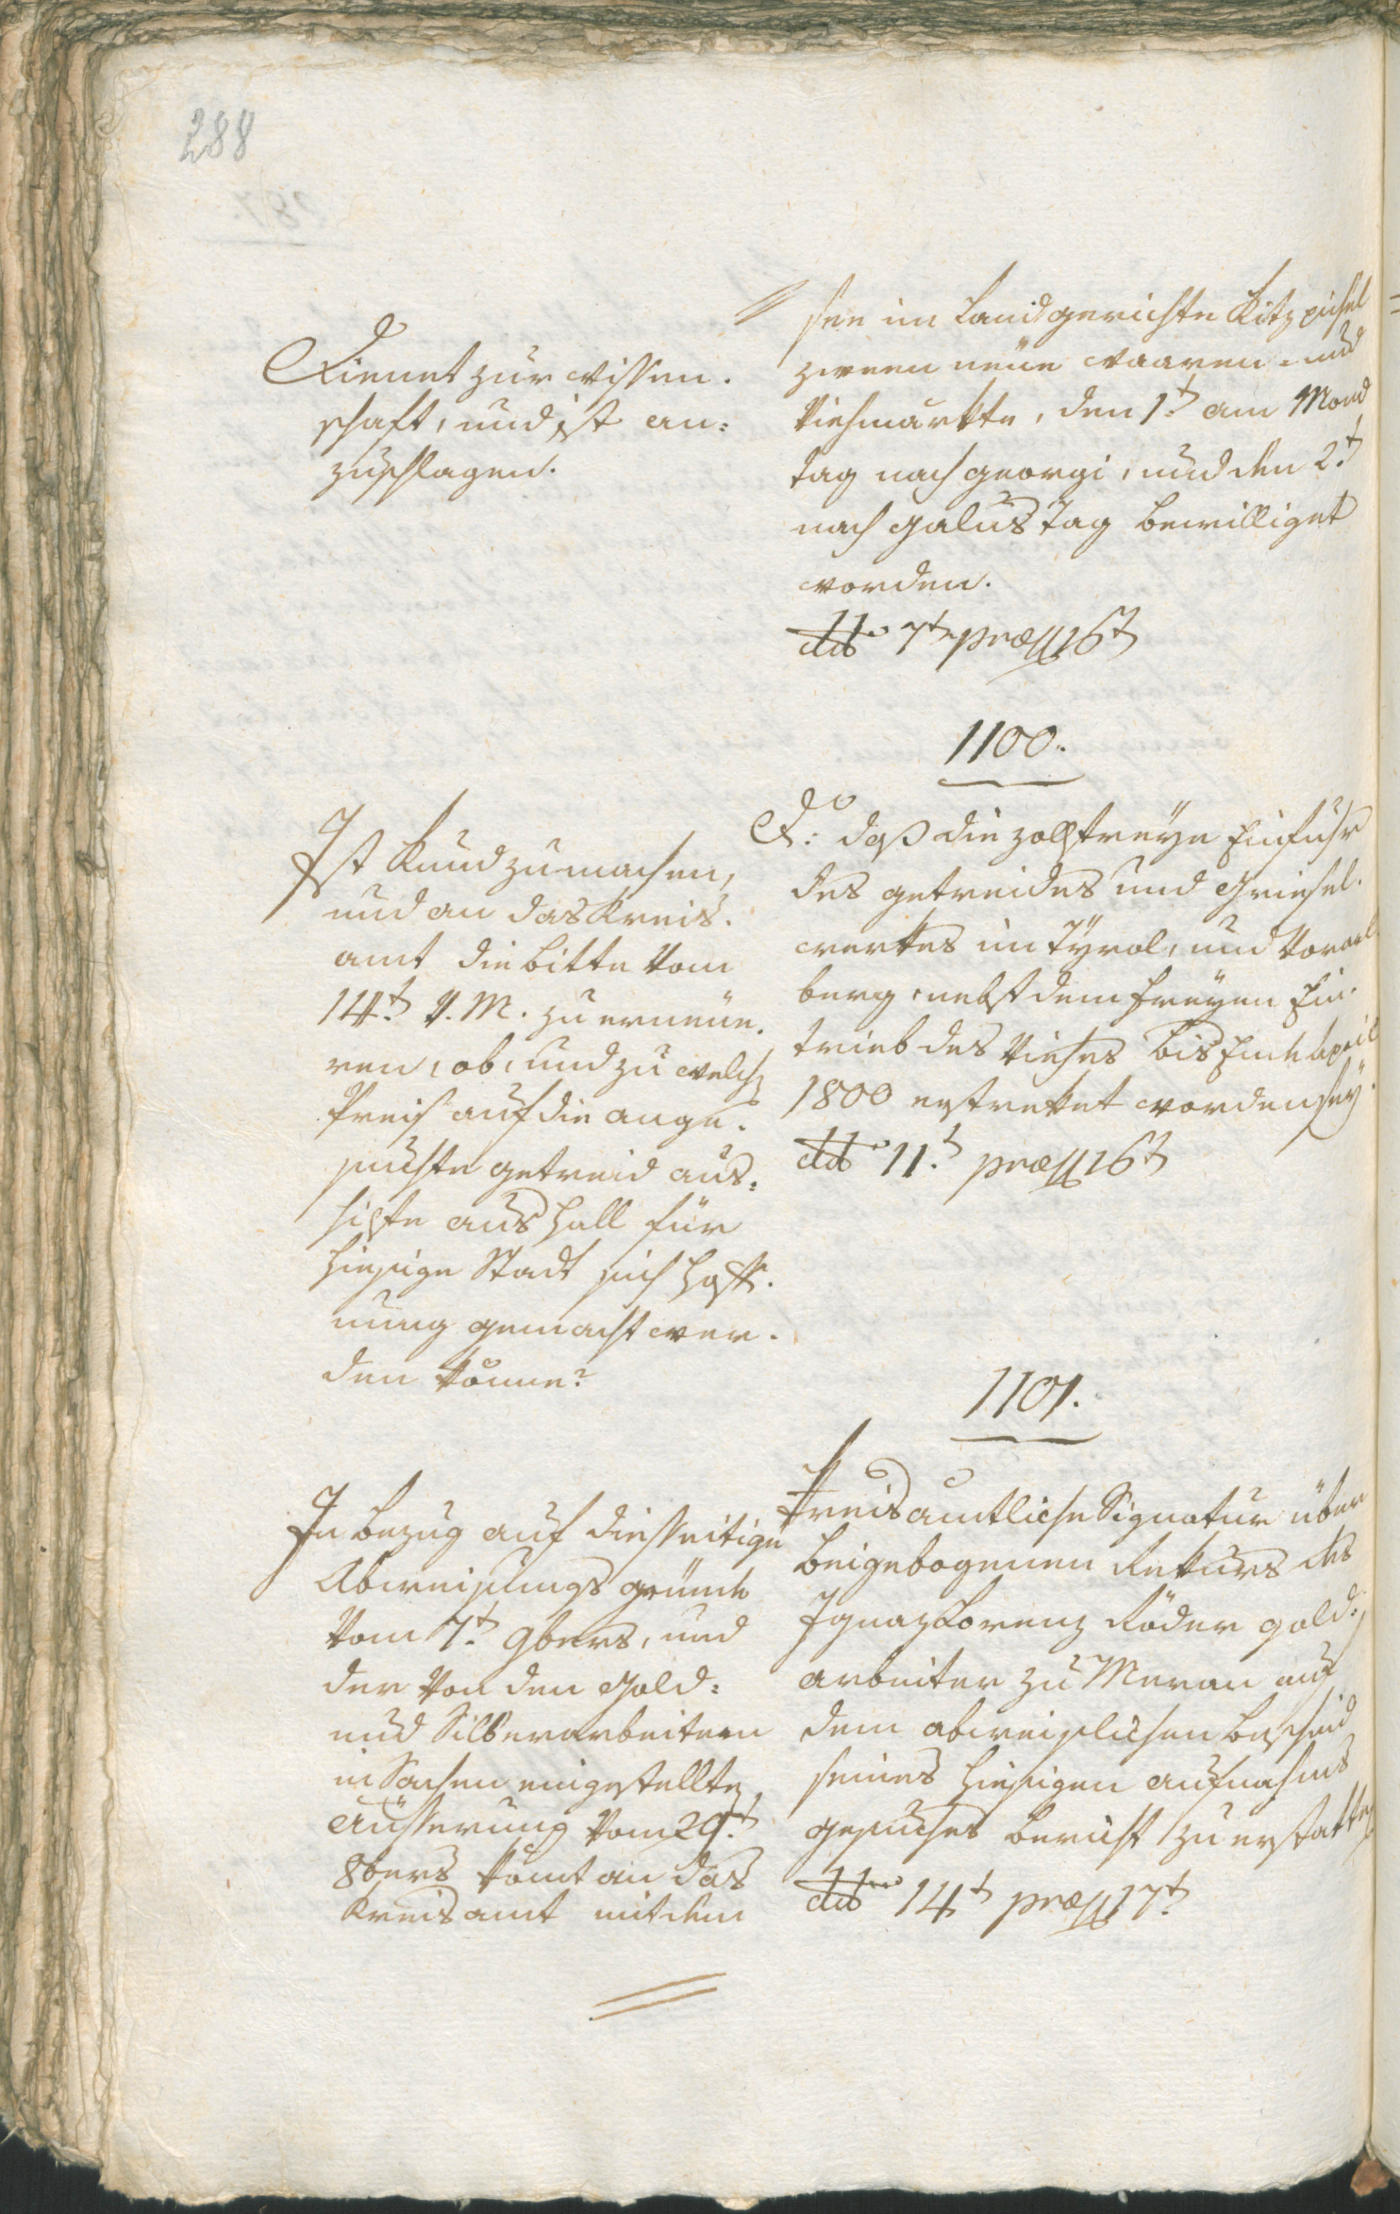 288
Dienet zur wissen-
schaft, und ist an=
zuschlagen.
see im Landgerichte Kitzpichel
zween neue Waaren- und
Viehmärkte, den 1t. am Mond
tag nach Georgi, und den 2.t
nach Galus Tag bewilliget
worden.
ddo 7t præss 16t
1100.
Ist kund zu machen,
und an das Kreis-
amt die Bitte vom
14t. v. M. zu erneue-
ren, ob, und zu welch
Preis auf die ange-
suchte Getreid aus=
hilfe aus Hall für
hiesige Stadt sich Hoff-
nung gemacht wer-
den könne?
Do: daß die zollfreye Einfuhr
des Getreides und Griesel-
werkes in Tÿrol, und Vorarl
berg, nebst dem freyen Ein-
trieb des Viehes bis Ende April
1800 erstrekket worden seÿ.
ddo 11.t præss 16t
1101.
In Bezug auf diesseitige
Abweisungs gründe
vom 7t. 9bers, und
der von den Gold=
und Silberarbeitern
in Sachen eingestellte
Äusserung vom 29.t
8bers kömt an das
Kreisamt mit dem
Kreisamtliche Signatur über
beigebogenen Rekurs des
Ignaz Lorenz Röder Gold=
arbeiter zu Meran auf
dem abweislichen Bescheid
seines hiesigen Aufnahms
gesuches Bericht zu erstatten
ddo 14t præss 17t.